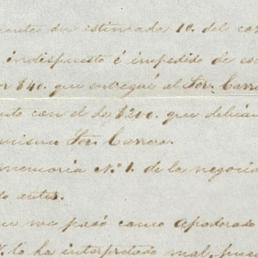 estimada 10. del co
indispuesto é impedido de es
$40. que entregué al Sor. Carre
to con el de $200. que debían
mismo Sor. Carrera.
memoria N.º 1. de la negocia
do antes.
me pasó como apoderado
lo ha interpretado mal, pues